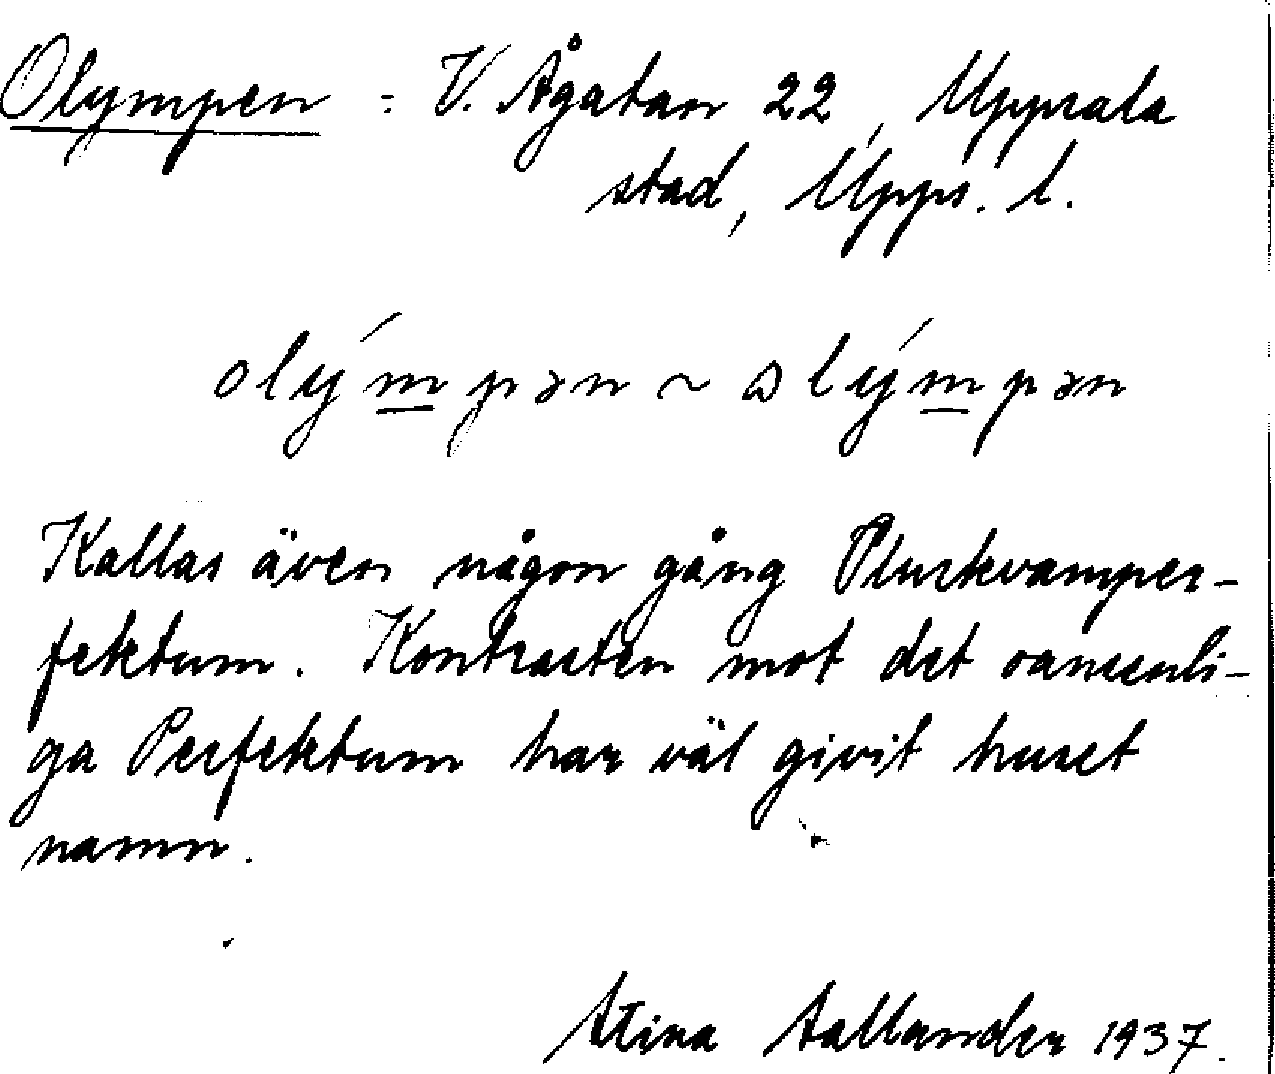 Olympen : V. Ågatan 22, Uppsala
stad, Upps. l.
olý́m̲pən ~ ωlý́m̲pən
Kallas även någon gång Pluskvamper-
fektum. Kontrasten mot det oansenli-
ga Perfektum har väl givit huset
namn.
Stina Sallander 1937.